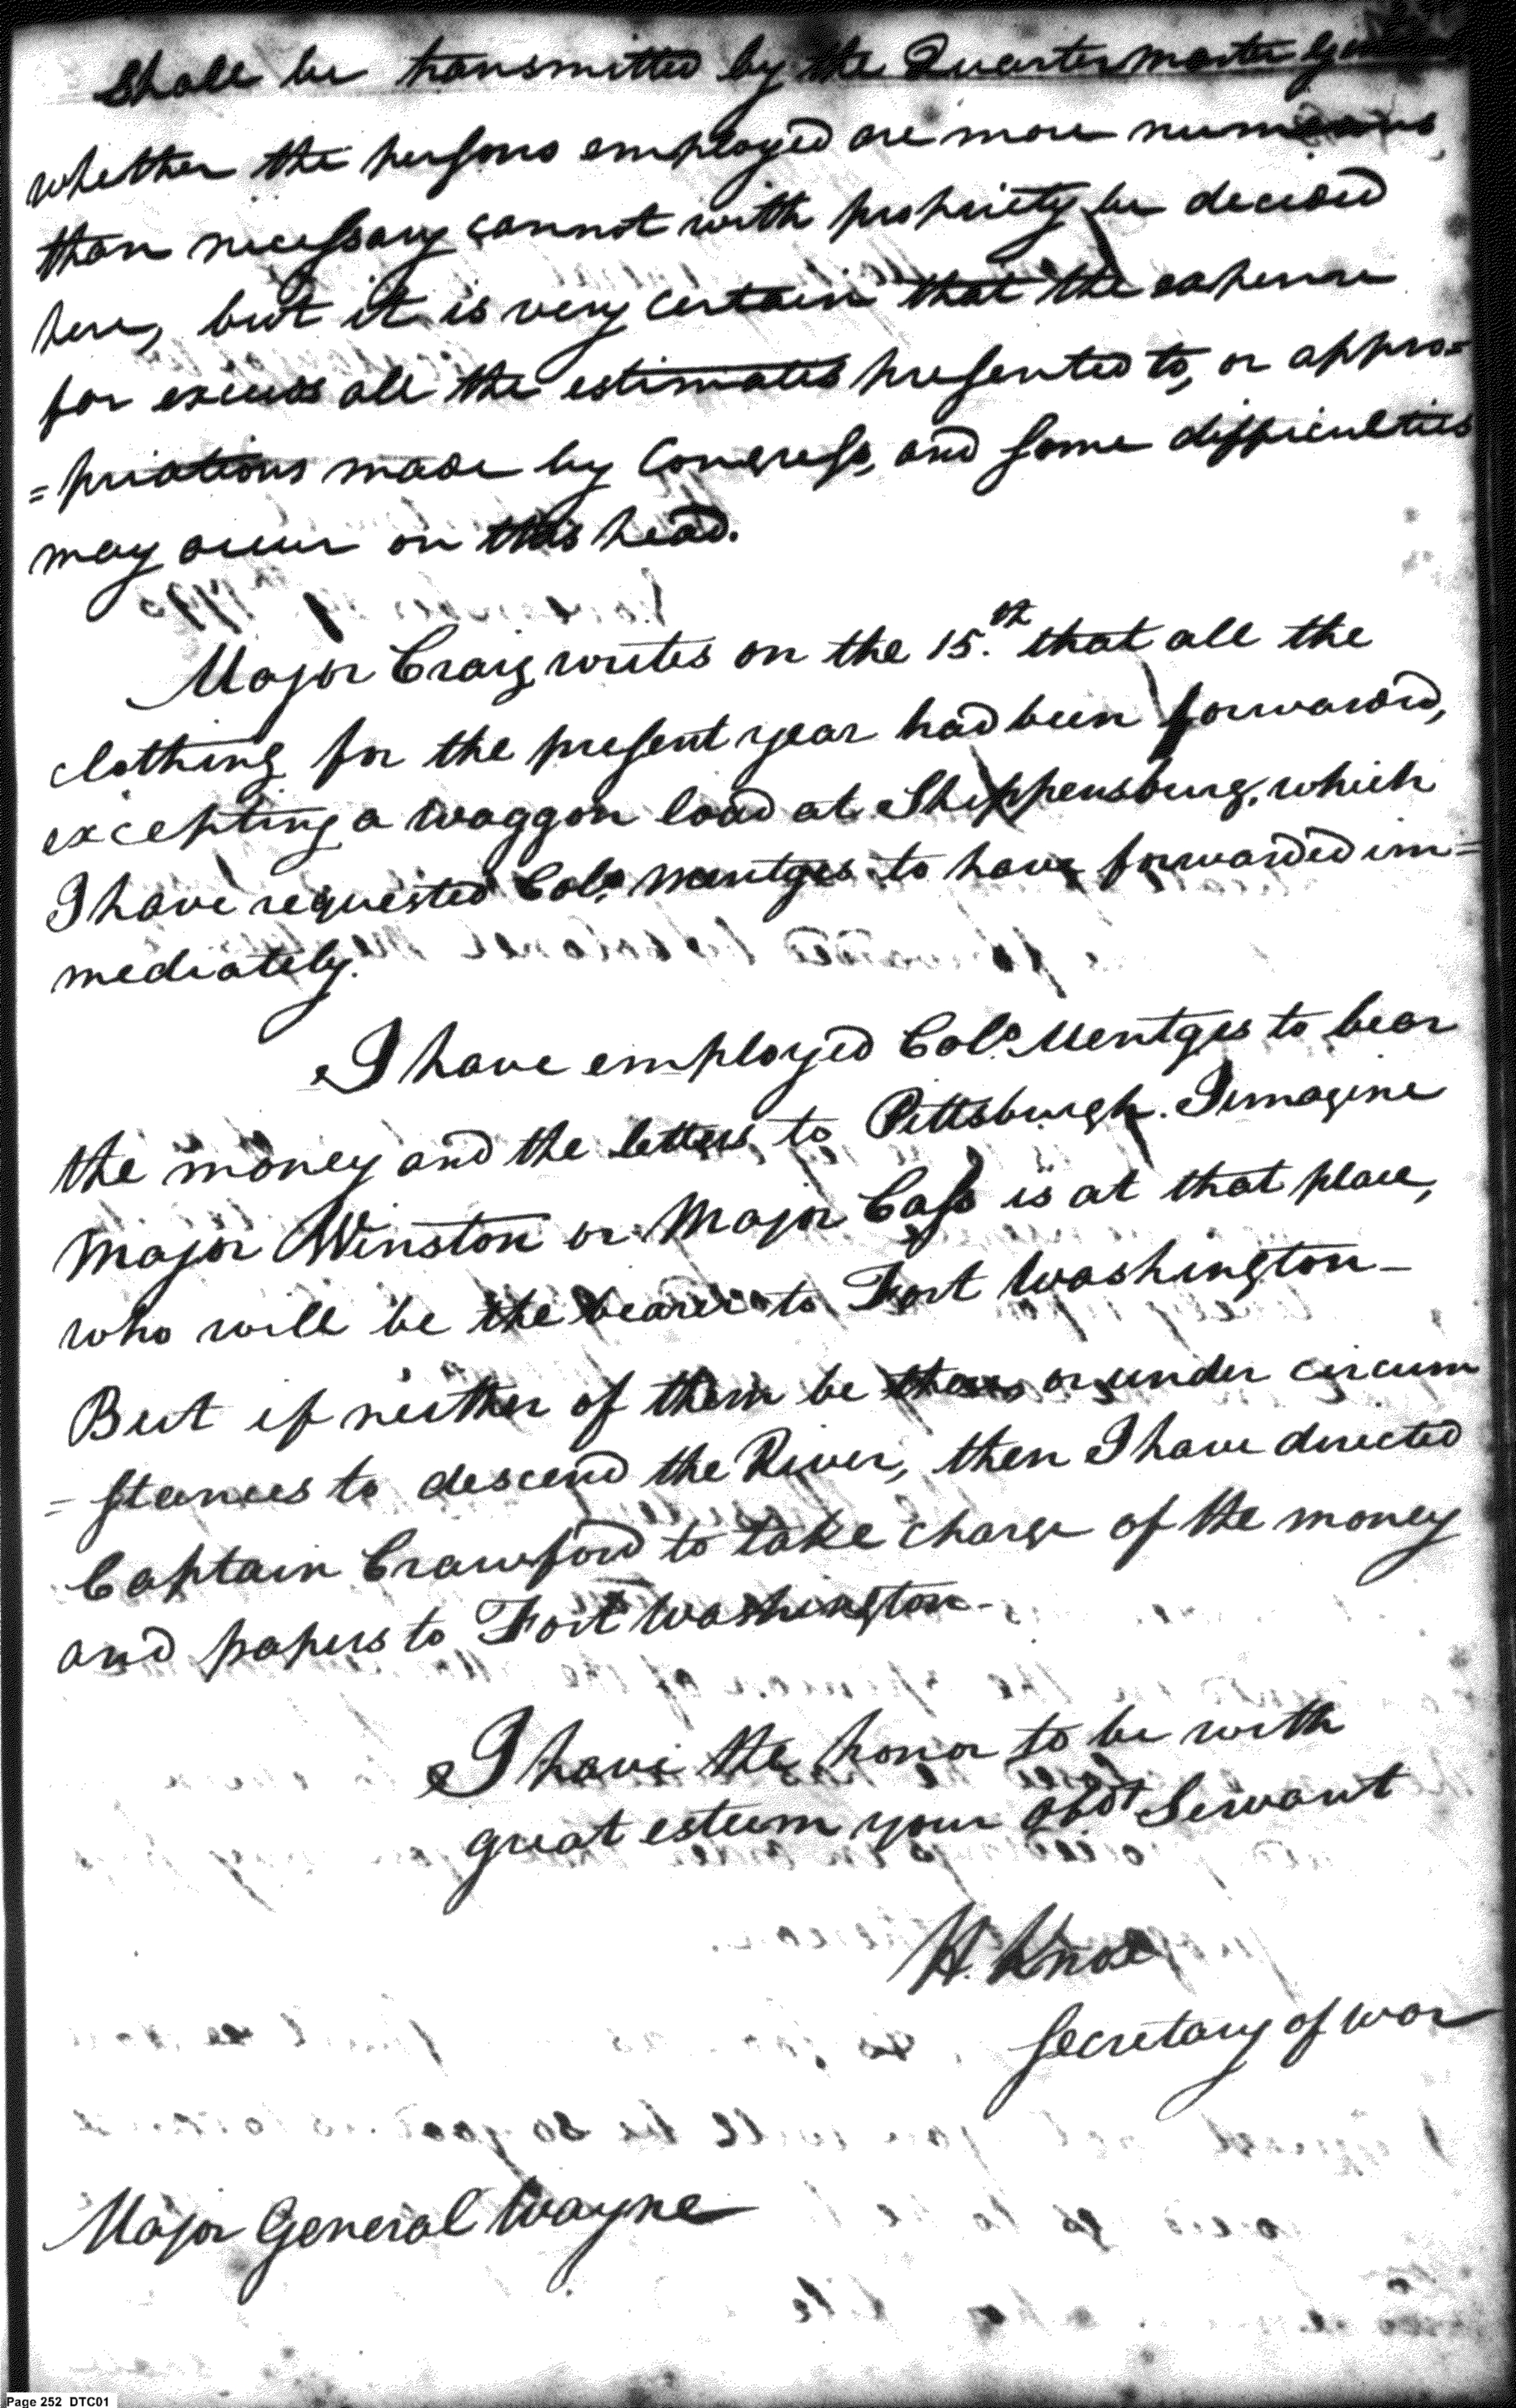 Shall be transmitted by the Quartermaster
whether the persons employed are more numerous
than necessary cannot with propriety be decided
here, but it is very certain that the expense
far excess all the estimates presented to, or appro=
=priations made by Congress, and some difficulties
may occur on this head.
Major Craig writes on the 15.th that all the
clothing for the present year had been forwarded,
excepting a waggon load at Shippensburg, which
I have requested Colo. Mentges to have forwarded im=
mediately.
I have employed Colo. Mentges to bear
the money and the letters to Pittsburgh. I imagine
Major Winston or Major Cass is at that place,
who will be the bearer to Fort Washington_
But if neither of them be there or under circum
=stances to descend the River, then I have directed
Captain Crawford to take charge of the money
and papers to Fort Washington_
I have the honor to be with
great esteem your obdt Servant
H. Knox
Secretary of War
Major General Wayne
Page 252 DTC01